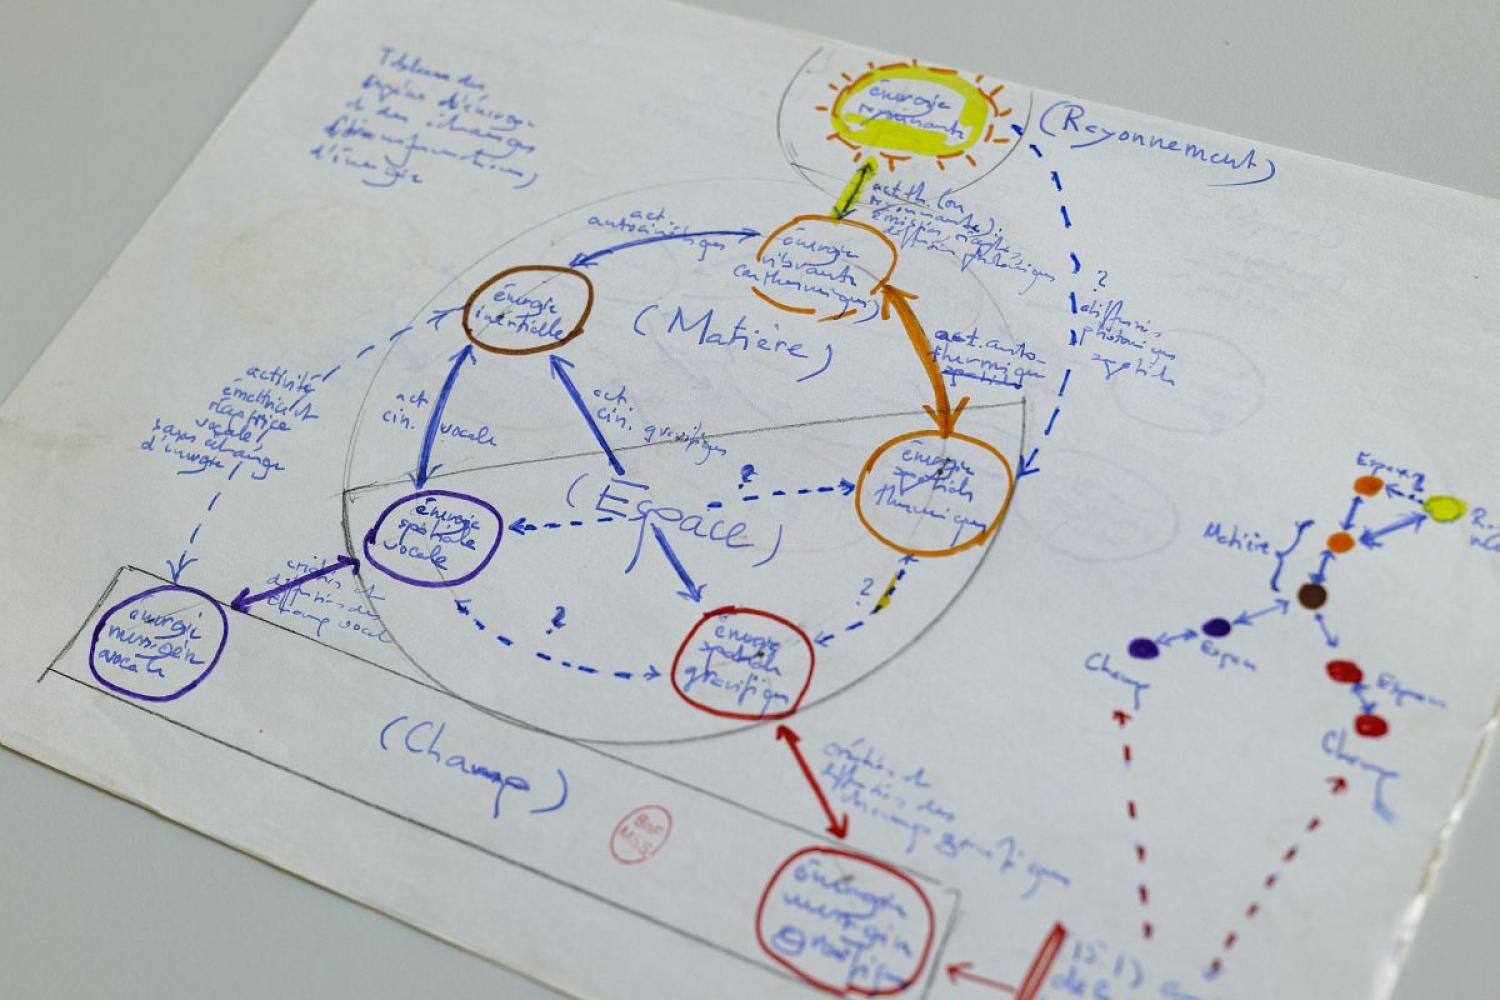 Tableau des
types d'énergie
et des échanges
(transformations)
d'énergie
énergie
rayonnante
(Rayonnement)
act. th. (ou
rayonnante):
émission, réception,
diffusion photonique
act.
autocinétiques
énergie
vibrante
(ou thermique)
énergie
inertielle
(Matière)
?
diffusion
photonique
spatiale
act. auto-
thermique
spatiale
activité
émettrice et
réceptrice
vocale,
sans échange
d'énergie
act.
cin. vocale
act.
cin. gravifique
énergie
spatiale
thermique
(Espace)
?
énergie
spatiale
vocale
?
?
création et
diffusion des
champs vocal
énergie
vocale
énergie
spatiale
gravifique
(Champ)
création et
diffusion des
champs gravifiques
BnF
MSS
énergie
gravifique
Espace?
R.
Matière
Espace
Champ
Espace
Champ
(15.1)